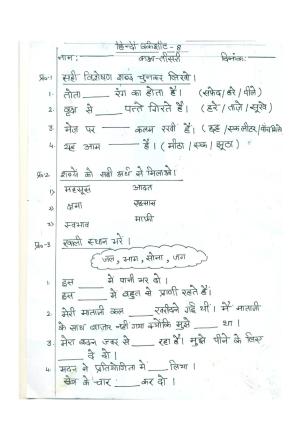 हिन्दी वर्कशीट - 8
नाम: कक्षा-तीसरी दिनांक:
प्रश्न-1 सही विशेषण शब्द चुनकर लिखो।
1. तोता ____ रंग का होता है। (सफेद / हरे / पीले)
2. वृक्ष से ____ पत्ते गिरते हैं। (हरे / ताज़े / सूखे)
3. मेज पर ____ कलम रखी हैं।
4. यह आम ____ है। (मीठा / एक / झूठा)
प्रश्न-2 शब्दों को सही अर्थ से मिलाओ।
1) महसूस आदत
2) क्षमा एहसास
3) स्वभाव माफी
प्रश्न-3 खाली स्थान भरे।
जल, भाग, सोना, जग
1. इस ____ में पानी भर दो।
इस ____ में बहुत से प्राणी रहते हैं।
2. मेरी माताजी कल ____ खरीदने गई थी। मैं माताजी
के साथ बाजार नहीं गया क्योंकि मुझे ____ था।
3. मेरा बदन ज्वर से ____ रहा है। मुझे पीने के लिए
____ दे दो।
4. मदन ने प्रतियोगिता में ____ लिया।
सेब के चार ____ कर दो।